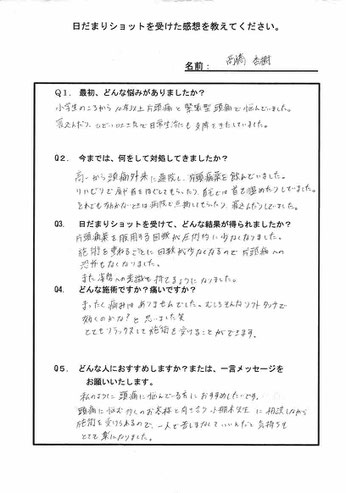 日だまりショットを受けた感想を教えてください。
名前： 高橋 杏樹
Q1． 最初、どんな悩みがありましたか？
小学生のころから10年以上片頭痛と緊張型頭痛で悩んでいました。
日常生活にも支障をきたしていました。
Q2． 今までは、何をして対処してきましたか？
高一から頭痛外来に通院し、片頭痛薬を飲んでいました。
リハビリで肩や首をほぐしてもらったり、自宅では首を温めたりしていました。
それでも効かないときは病院で点滴してもらったり、寝こんだりしていました。
Q3． 日だまりショットを受けて、どんな結果が得られましたか？
片頭痛薬を服用する回数が圧倒的に少なくなりました。
施術を重ねるごとに回数が少なくなるので片頭痛への
恐怖もなくなりました。
また姿勢への意識も持てるようになりました。
Q4． どんな施術ですか？痛いですか？
まったく痛みはありませんでした。むしろそんなソフトタッチで
効くのかな？と思いました笑
とてもリラックスして施術を受けることができます。
Q5． どんな人におすすめしますか？または、一言メッセージを
お願いいたします。
私のように頭痛に悩んでいる方におすすめしたいです。
頭痛に悩む多くのお客様と向き合う 先生に相談しながら
施術を受けられるので、一人で苦しまなくていいんだと気持ちも
とても楽になりました。